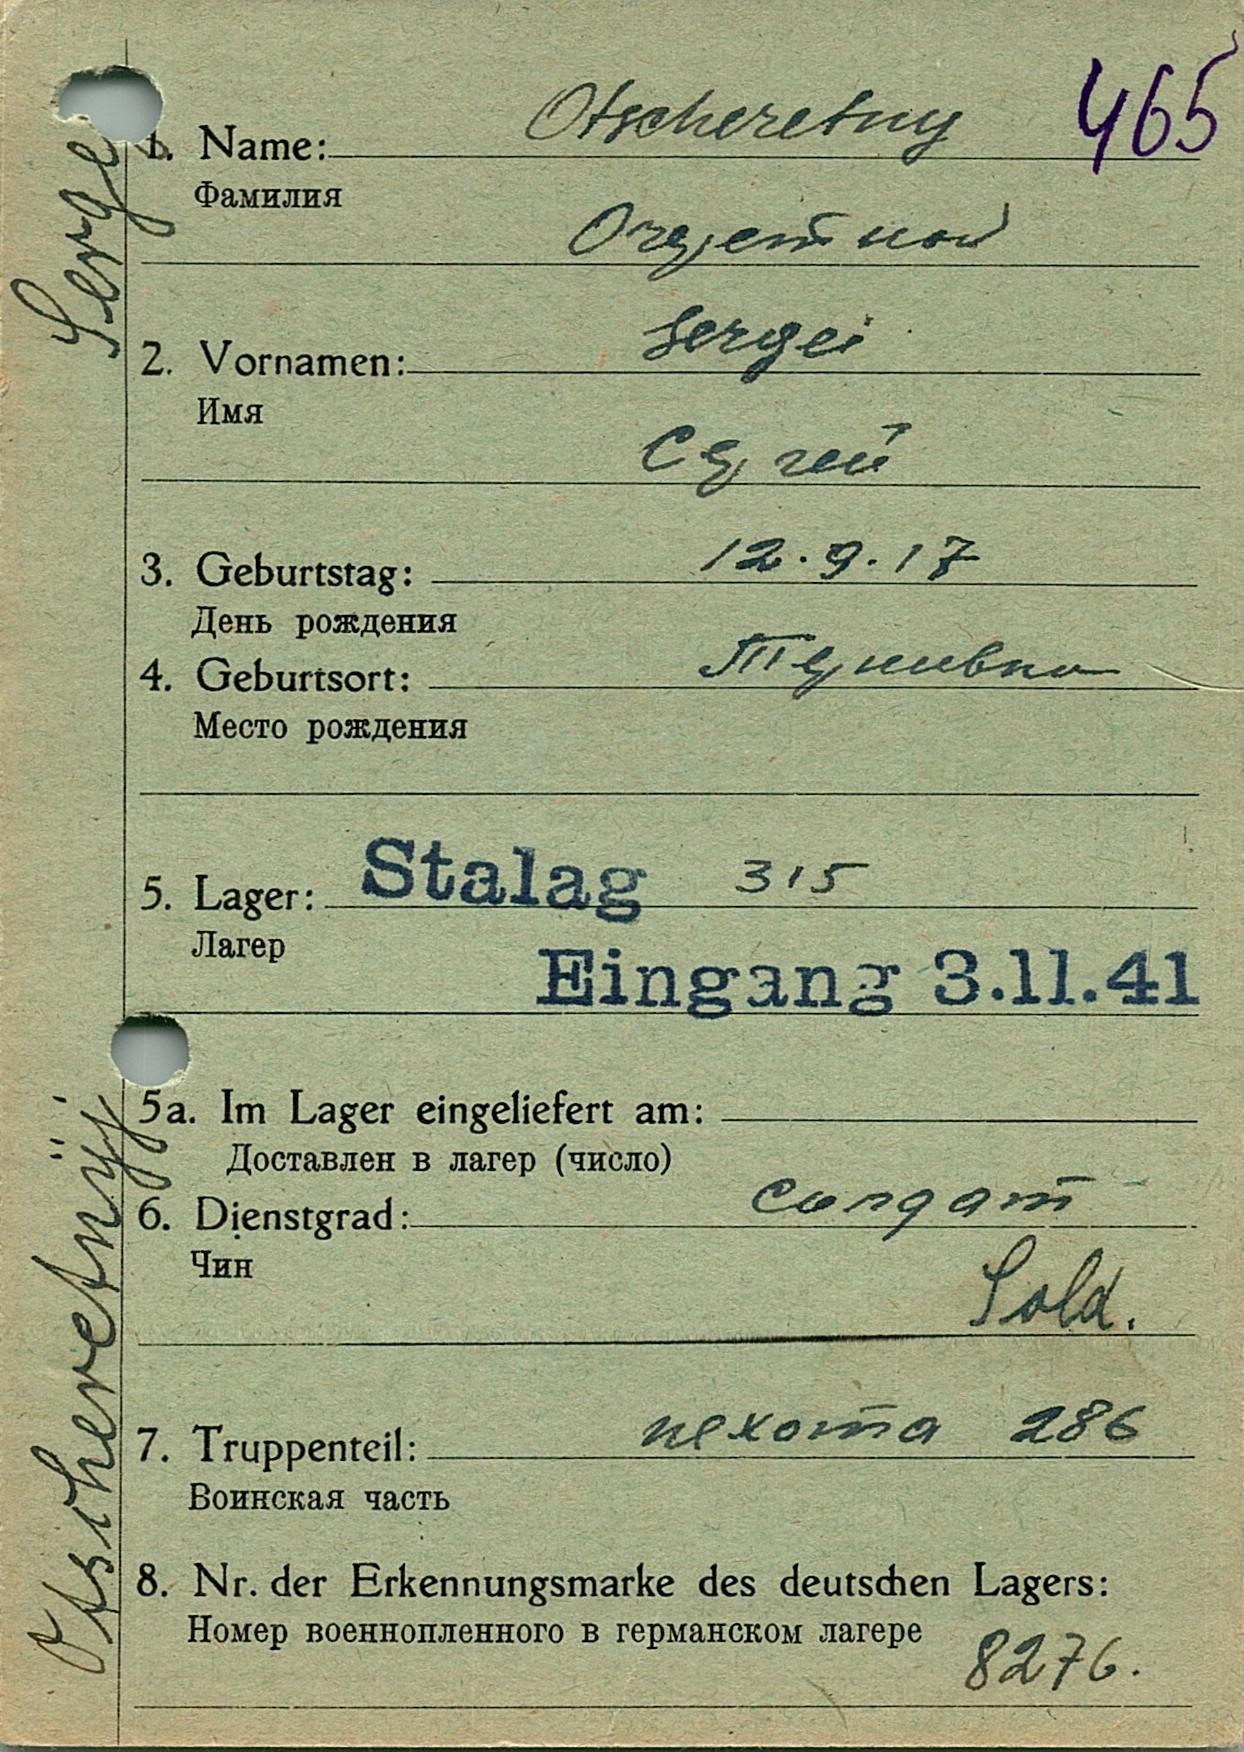 465
1. Name: Otscheretny
Фамилия
2. Vornamen: Sergei
Имя
Сергей
3. Geburtstag: 12.9.17
День рождения
4. Geburtsort:
Место рождения
5. Lager: Stalag 315
Лагер
Eingang 3.11.41
5a. Im Lager eingeliefert am:
Доставлен в лагер (число)
6. Dienstgrad: солдат
Чин
Sold.
7. Truppenteil: пехота 286
Воинская часть
8. Nr. der Erkennungsmarke des deutschen Lagers:
Номер военнопленного в германском лагере
8276.
Otscheretnÿj